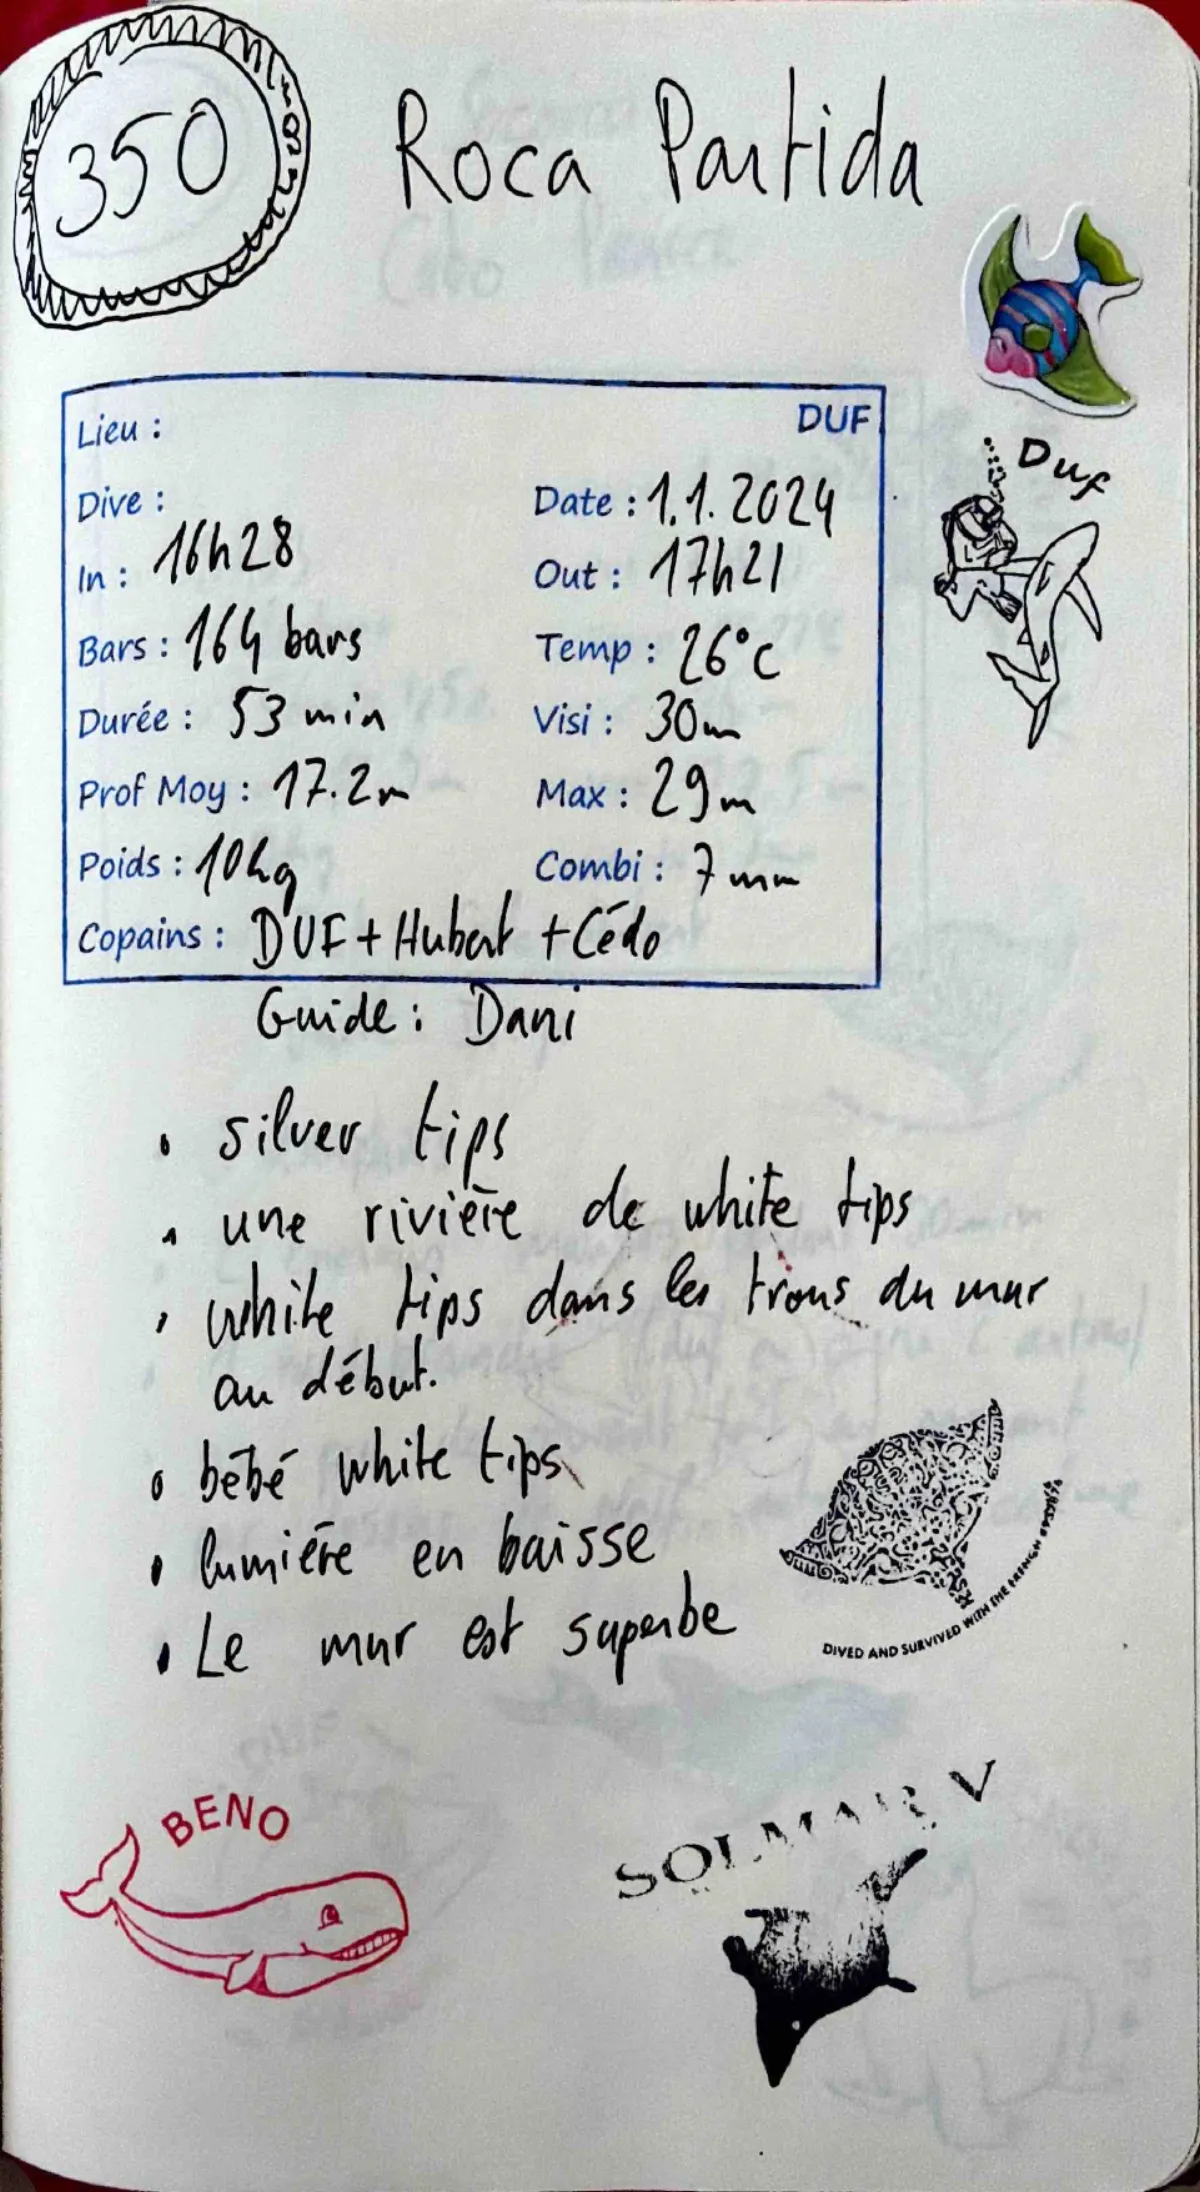 350
Roca Partida
Lieu : DUF
Duf
Dive : Date : 1.1.2024
In : 16h28 Out : 17h21
Bars : 164 bars Temp : 26°C
Durée : 53 min Visi : 30m
Prof Moy : 17.2m Max : 29m
Poids : 10kg Combi : 7mm
Copains : DUF + Hubert + Cédo
Guide : Dani
• silver tips
• une rivière de white tips
• white tips dans les trous du mur
au début.
• bébé white tips
• lumière en baisse
• Le mur est superbe
DIVED AND SURVIVED WITH THE FRENCH
BENO
SOLMAR V